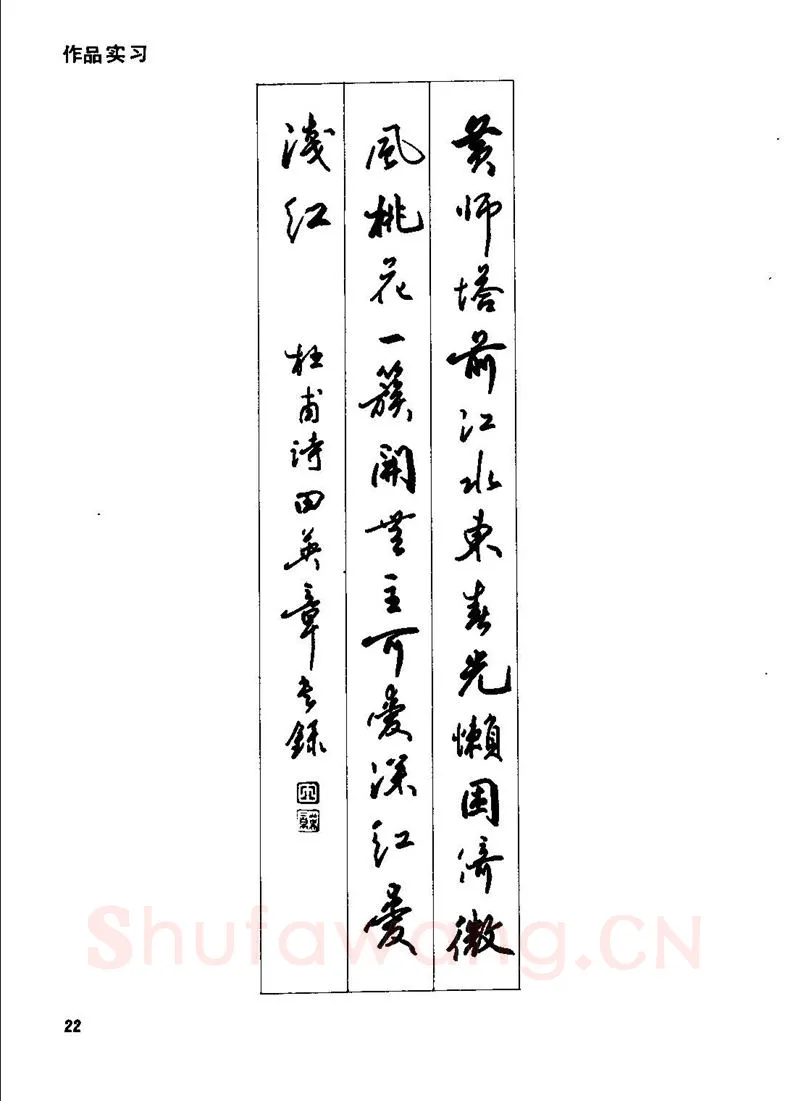 作品实习
黄师塔前江水東春光懒困倚微
風桃花一簇開無主可愛深红愛
淺红
杜甫诗田英章书録
Shufawang.CN
22